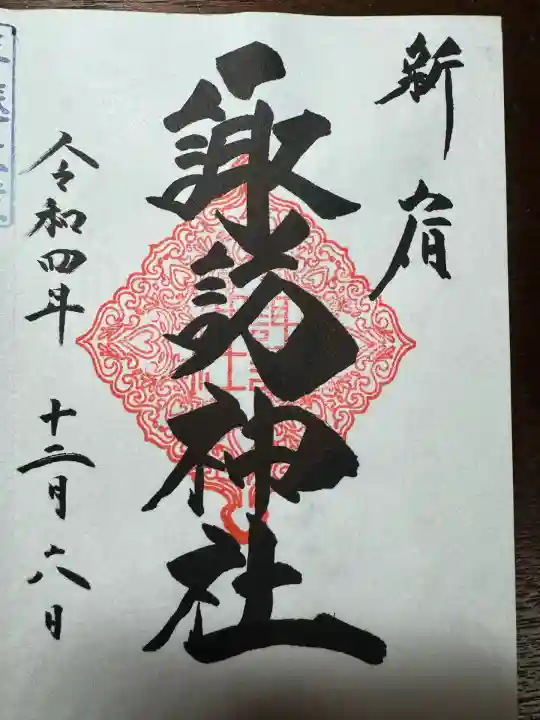 新宿
諏訪神社
令和四年 十二月 六日